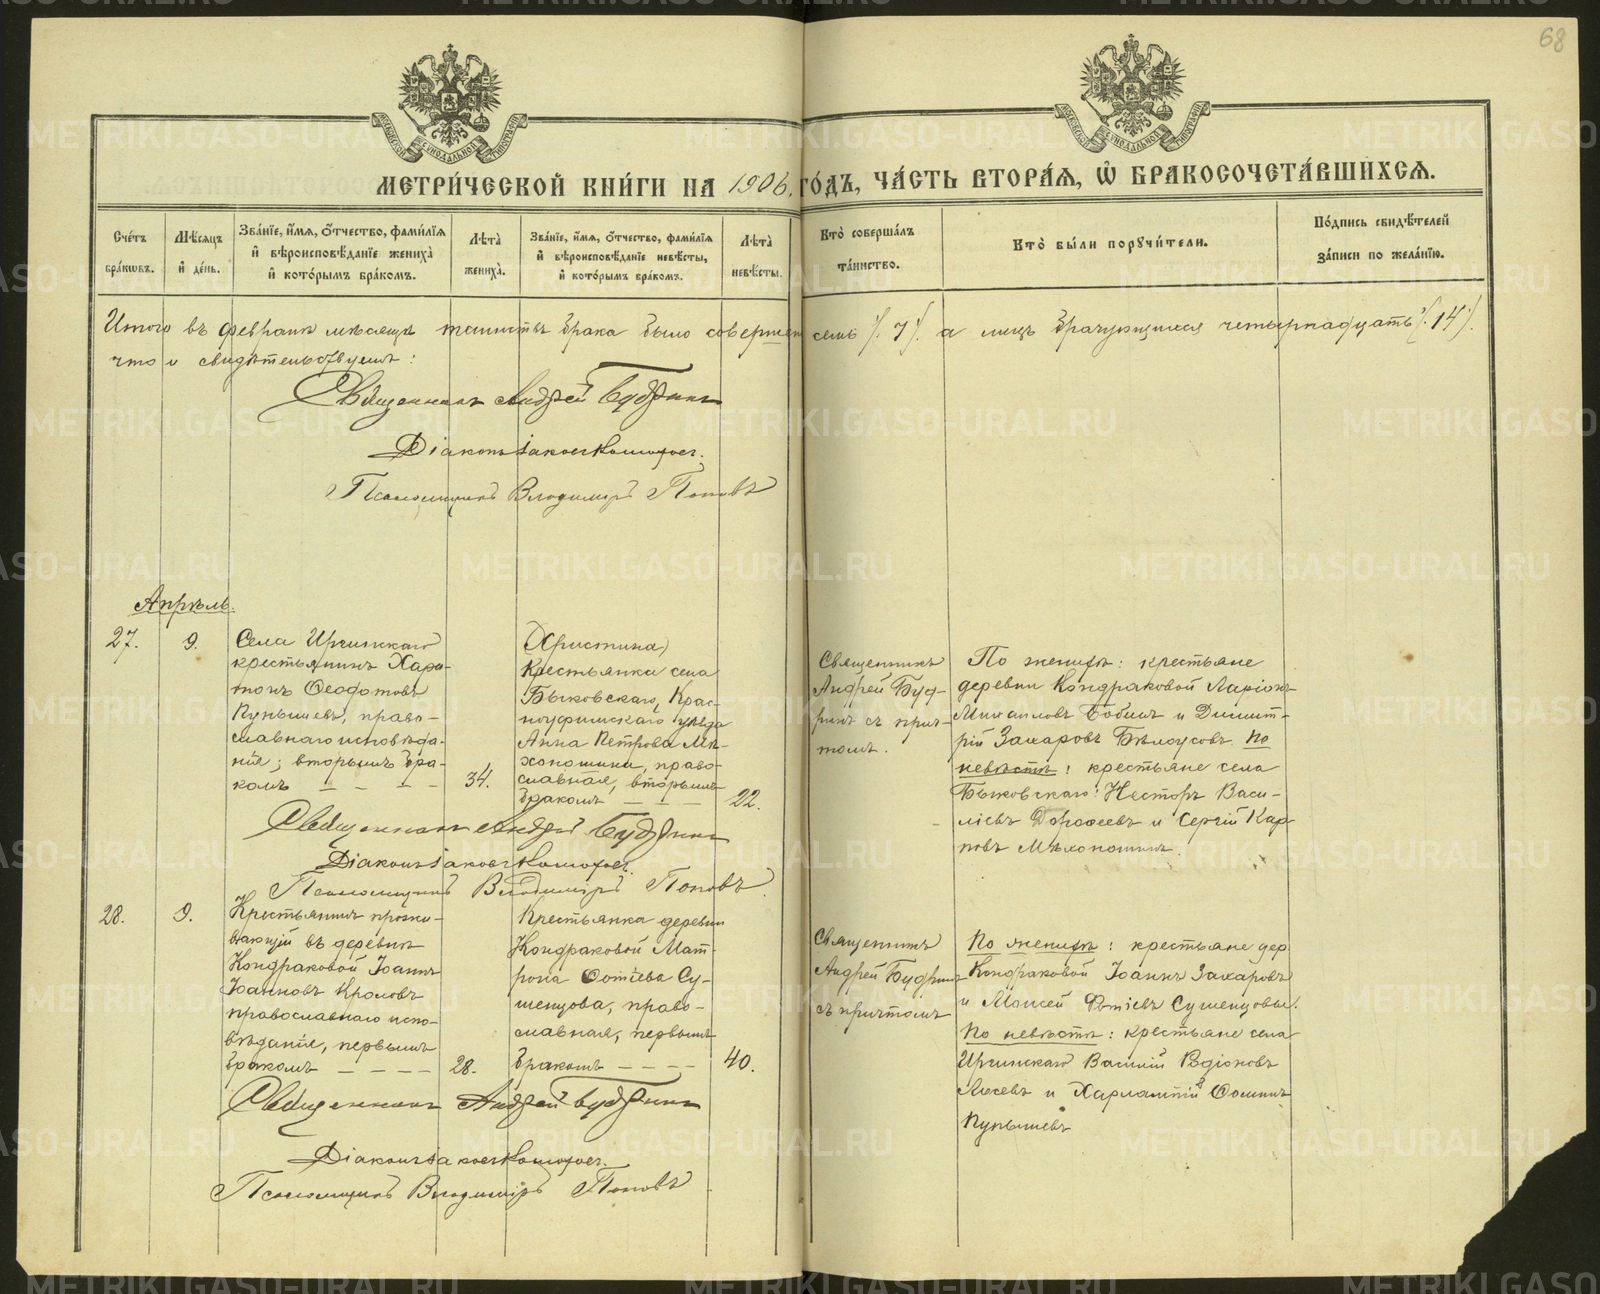 68
МЕТРИ́ЧЕСКОЙ КНИ́ГИ НА 1906 ГО́ДЪ, ЧА́СТЬ ВТОРА́Я, Ѡ҆ БРАКОСОЧЕТА́ВШИХСЯ.
Сче́тъ бра́кѡвъ.
Мѣ́сяцъ и҆ де́нь.
Зва́нїе, и҆́мя, ѻ҆́тчество, фами́лїя и҆ вѣроисповѣ́данїе жениха̀ и҆ кото́рымъ бра́комъ.
Лѣ́та жениха̀.
Зва́нїе, и҆́мя, ѻ҆́тчество, фами́лїя и҆ вѣроисповѣ́данїе невѣ́сты, и҆ кото́рымъ бра́комъ.
Лѣ́та невѣ́сты.
Кто̀ соверша́лъ та́инство.
Кто̀ бы́ли порꙋчи́тели.
По́дпись свидѣ́телей за́писи по жела́нїю.
Итого въ февралѣ мѣсяцѣ таинствъ брака было совершено семь /7/. а лицъ брачущихся четырнадцать /14/.
что и свидѣтельствуемъ:
Священникъ Андрей Будринъ
Діаконъ Іаковъ
Псаломщикъ Владиміръ Поповъ
Апрѣль.
27.
9.
Села Иргинскаго
крестьянинъ Хари-
тонъ Ѳеодотовъ
Пупышевъ, право-
славнаго исповѣда-
нія; вторымъ бра-
комъ — — — —
34.
(Христина)
Крестьянка села
Быковскаго, Крас-
ноуфимскаго уѣзда
Анна Петрова Мѣ-
хоношина, право-
славная, вторымъ
бракомъ — — —
22.
Священникъ
Андрей Буд-
ринъ съ прич-
томъ.
По женихѣ: крестьяне
деревни Кондраковой Ларіонъ
Михаиловъ Бобинъ и Димит-
рій Захаровъ Бѣлоусовъ. По
невѣстѣ: крестьяне села
Быковскаго: Несторъ Васи-
ліевъ Дорофеевъ и Сергій Кар-
повъ Мѣхоношинъ.
Священникъ Андрей Будринъ
Діаконъ Іаковъ
Псаломщикъ Владиміръ Поповъ.
28.
9.
Крестьянинъ прожи-
вающій въ деревнѣ
Кондраковой Іоаннъ
Іоанновъ Кроловъ
православнаго испо-
вѣданія, первымъ
бракомъ — — — —
28.
Крестьянка деревни
Кондраковой Мат-
рона Фотіева Су-
шенцова, право-
славная, первымъ
бракомъ — — — —
40.
Священникъ
Андрей Будринъ
съ причтомъ
По женихѣ: крестьяне дер.
Кондраковой Іоаннъ Захаровъ
и Моисей Фотіевъ Сушенцовы.
По невѣстѣ: крестьяне села
Иргинскаго Василій Родіоновъ
и Харлампій Ѳоминъ
Пупышевъ
Священникъ Андрей Будринъ
Діаконъ Іаковъ
Псаломщикъ Владиміръ Поповъ
METRIKI.GASO-URAL.RU